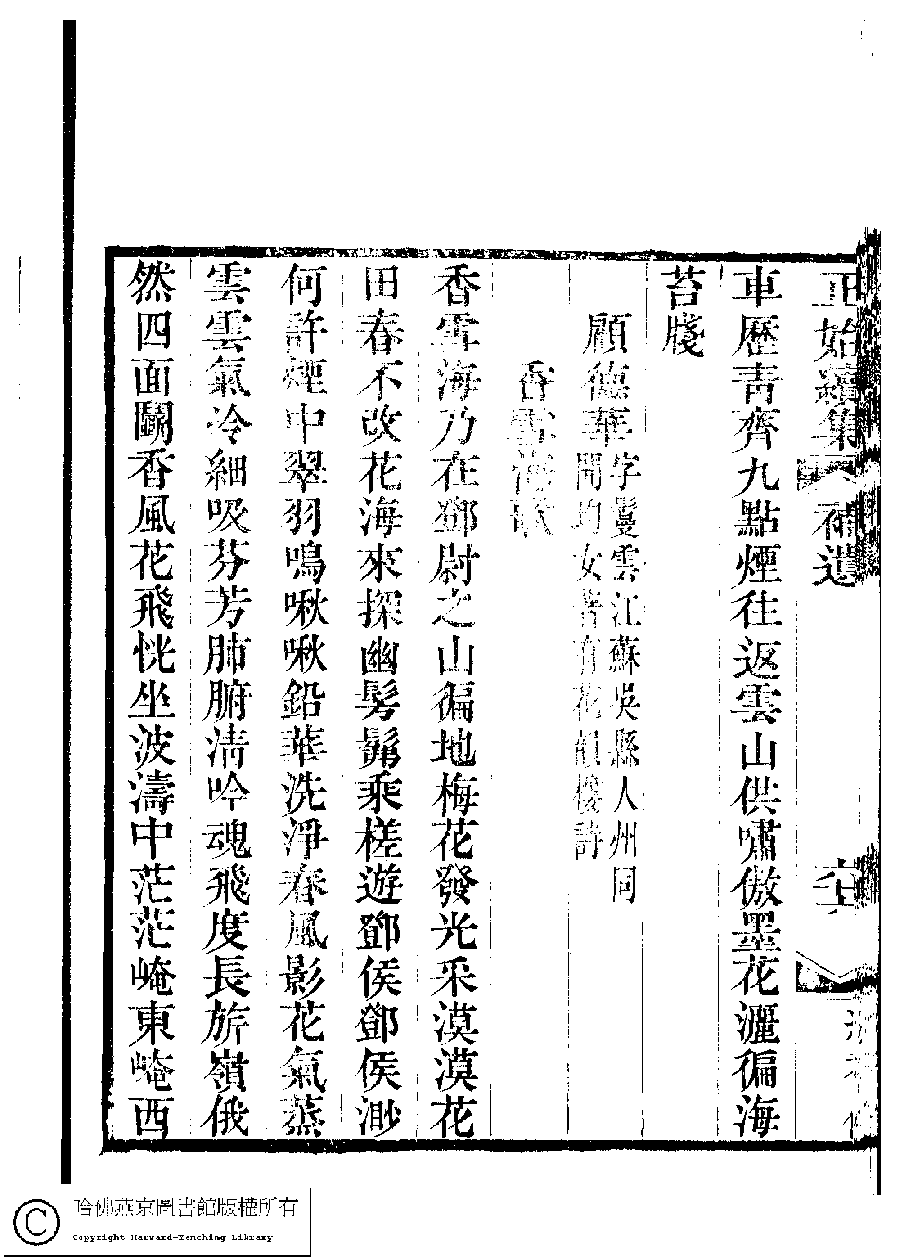 正始續集 補遺
車歷青齊九點煙往返雲山供嘯傲墨花灑徧海
苔牋
顧德華字鬘雲江蘇吳縣人州同
女著有花韻樓詩
香雪海歌
香雪海乃在鄧尉之山徧地梅花發光采漠漠花
田春不改花海來探幽髣髴乘槎遊鄧侯鄧侯渺
何許煙中翠羽鳴啾啾鉛華洗淨春風影花氣蒸
雲雲氣冷細吸芬芳肺腑清吟魂飛度長旂嶺俄
然四面鬭香風花飛恍坐波濤中茫茫崦東崦西
哈佛燕京圖書館版權所有
Copyright Harvard-Yenching Library